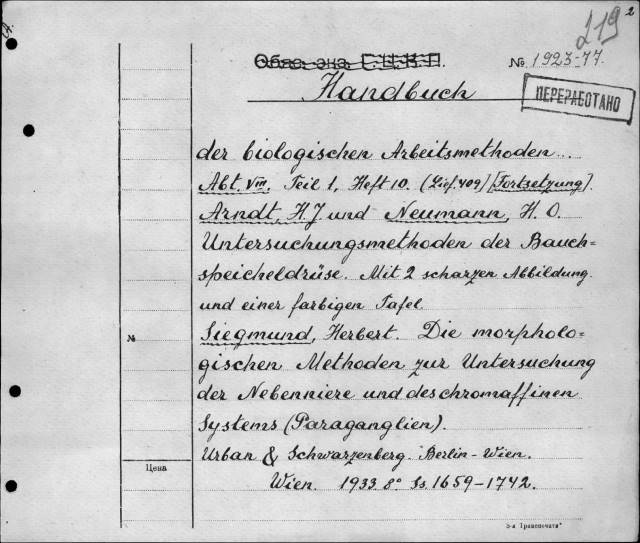 219 2
Обяз. экз. Г.Ц.К.П.
№ 1923-77.
Handbuch
ПЕРЕРАБОТАНО
der biologischen Arbeitsmethoden...
Abt. VIII. Teil 1, Heft 10. (Lief. 409) [Fortsetzung].
Arndt, H. J. und Neumann, H. O.
Untersuchungsmethoden der Bauch=
speicheldrüse. Mit 2 scharzen Abbildung.
und einer farbigen Tafel.
Siegmund, Herbert. Die morpholo=
№
gischen Methoden zur Untersuchung
der Nebenniere und des chromaffinen
Systems (Paraganglien).
Urban & Schwarzenberg. Berlin-Wien.
Цена
Wien. 1933 8° Ss. 1659-1742.
3-я Транспечати"